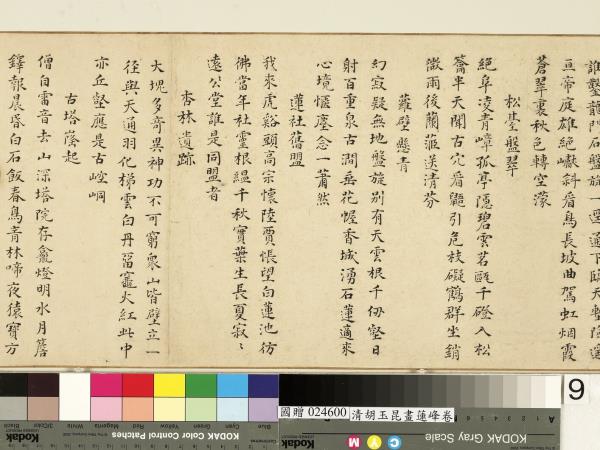 誰鑿龍門石盤旋一逕通下臨天塹險遥
亘帝庭雄絕巘斜看鳥長坡曲駕虹烟霞
蒼翠裏秋色轉空濛
松臺盤翠
絕阜凌青嶂孤亭隱碧雲茗甌千磴入松
蓋半天聞古穴看鼯引危枝礙鶴群坐銷
微雨後蘭茝送清芬
蘿壁懸青
幻寂疑無地盤旋別有天雲根千仞壑日
射百重泉古澗垂花幄香城湧石蓮適來
心境愜塵念一蕭然
蓮社舊盟
我來虎谿頭高宗懷陸賈悵望白蓮池彷
彿當年社靈根縕千秋寶葉生長夏寂〻
遠公堂誰是同盟者
杏林遺跡
大塊多奇異神功不可窮眾山皆壁立一
徑與天通羽化梯雲白丹留竈火紅此中
亦丘壑應是古崆峒
古塔蔭起
僧自雷音去山深塔院存龕燈明水月簷
鐸報晨昏白石飯春鳥青林啼夜猿寶方
國贈 024600 清胡玉昆畫蓮峰卷
9
Kodak
KODAK Color Control Patches
Blue Cyan Green Yellow Red Magenta White 3/Color Black
KODAK Gray Scale
C Y M
Kodak
A